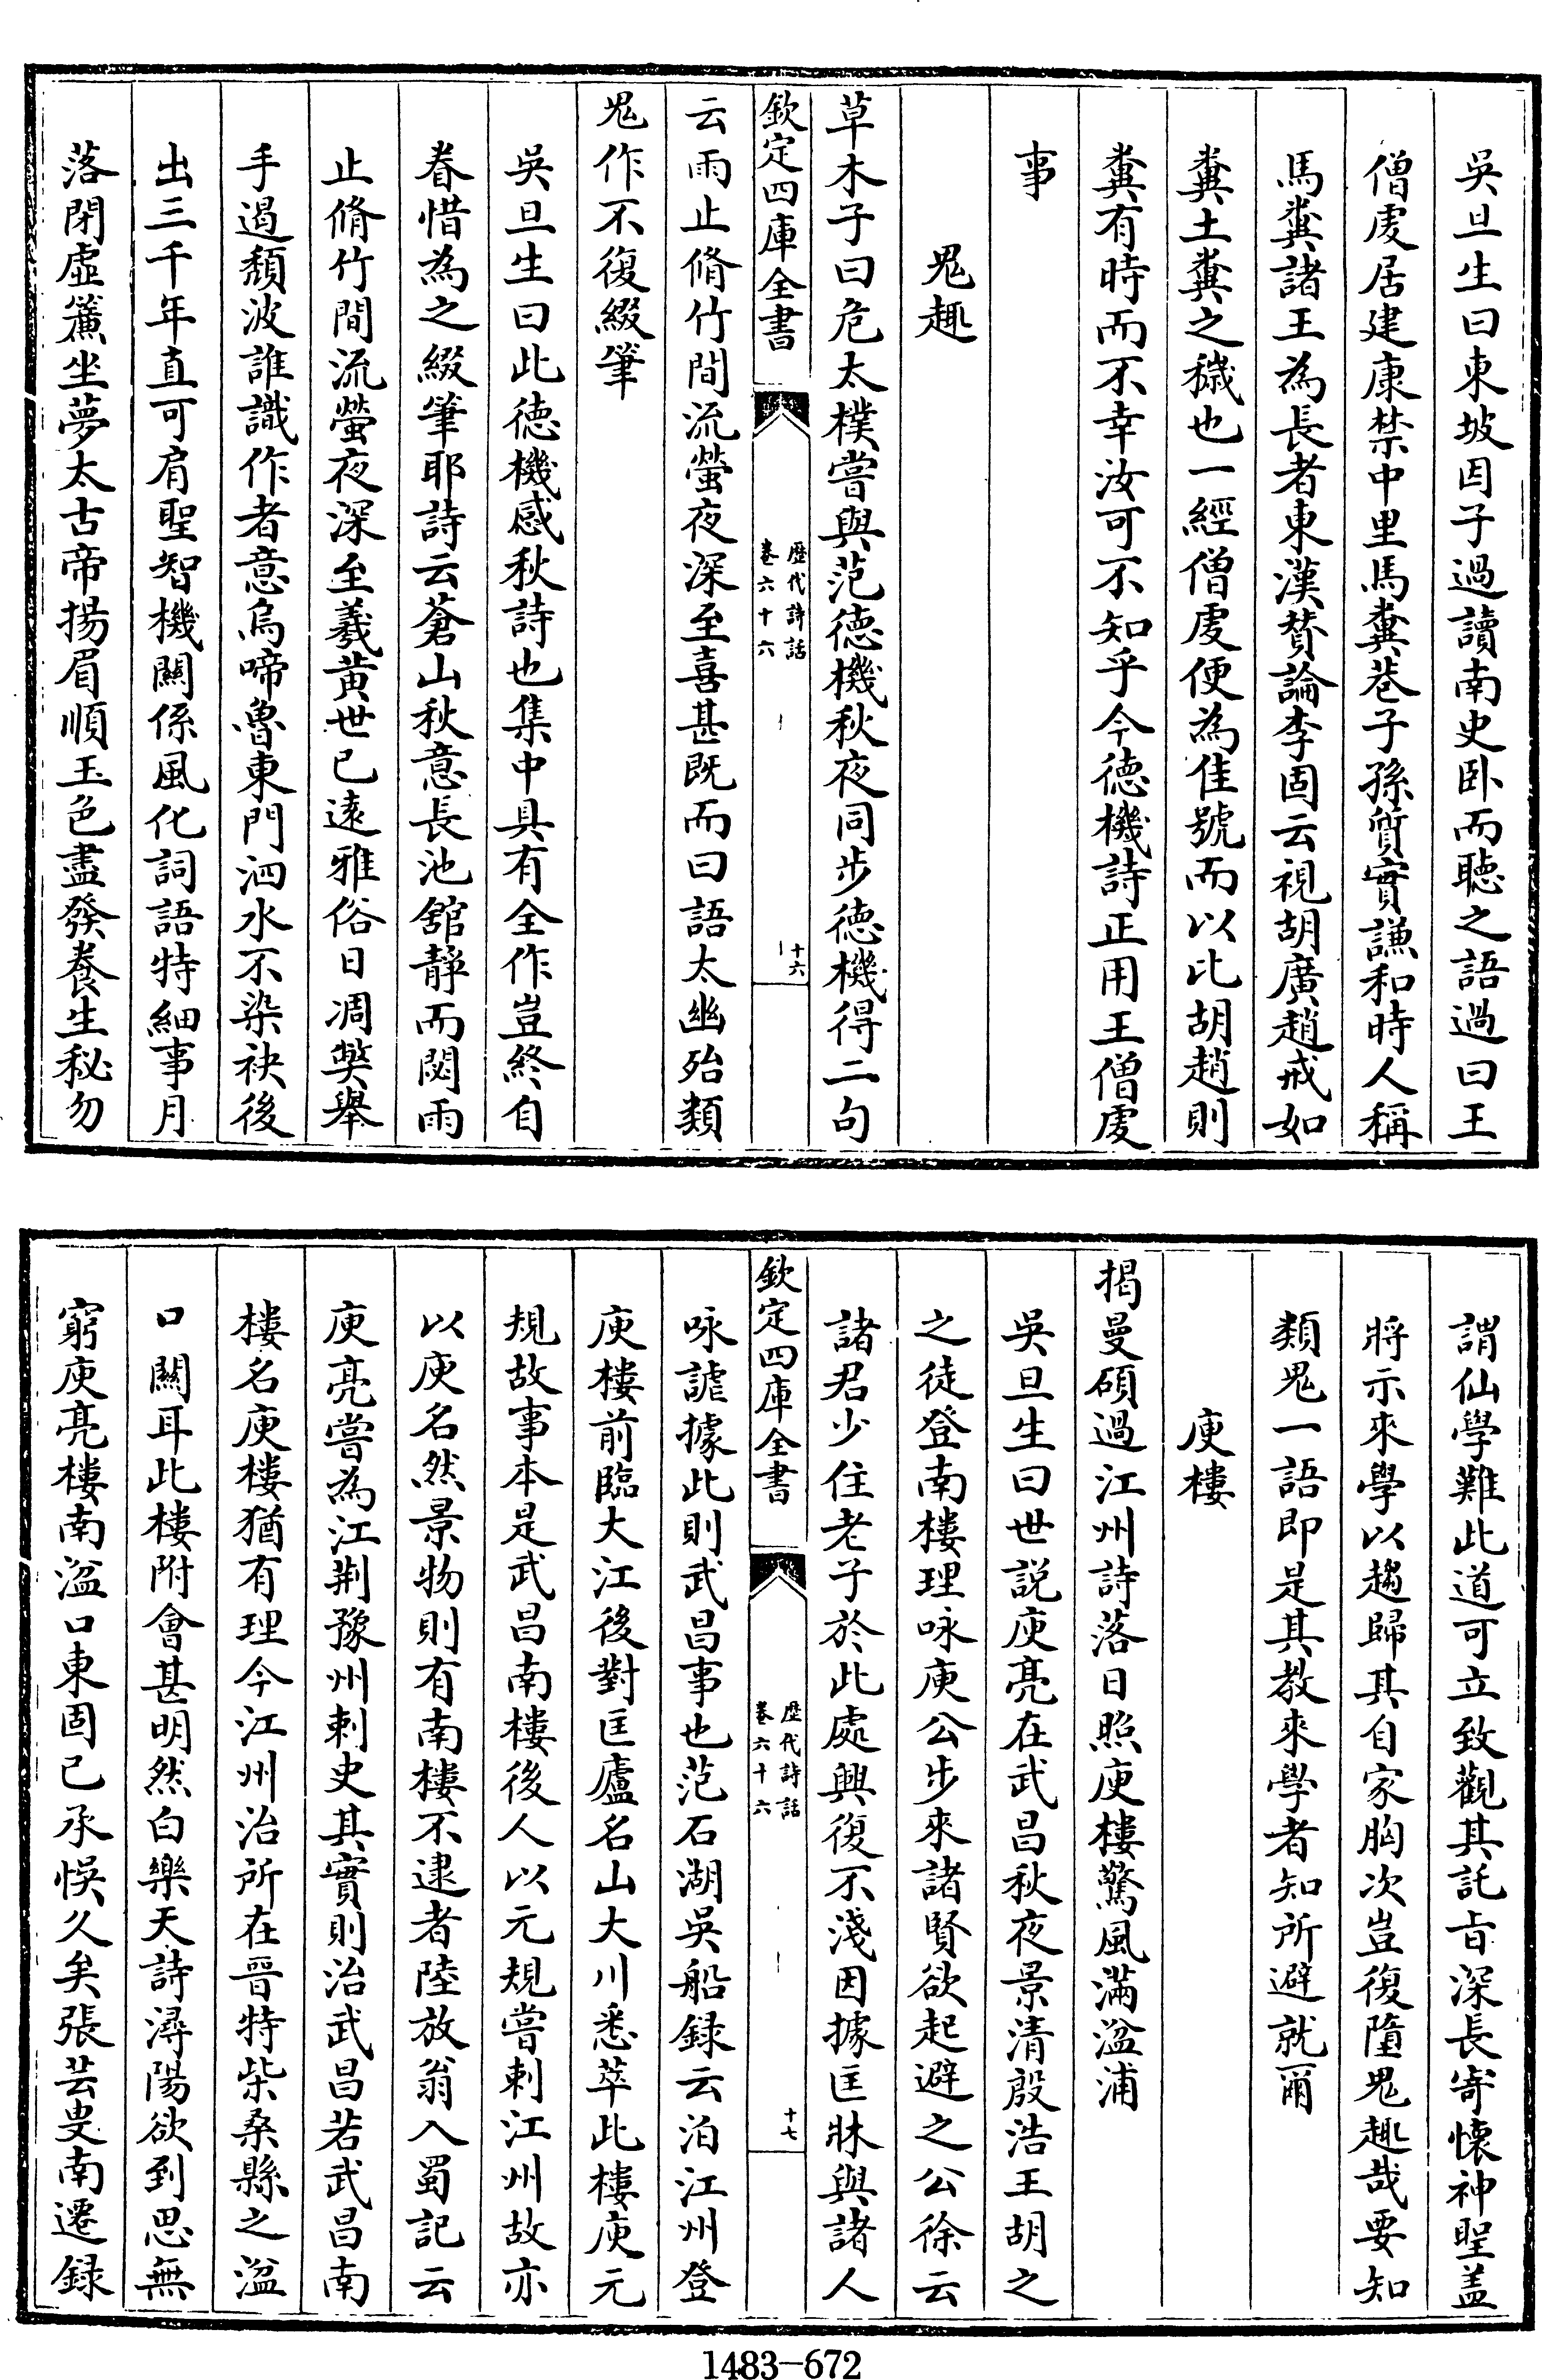 吳旦生曰東坡因子過讀南史卧而聽之語過曰王
僧虔居建康禁中里馬糞巷子孫質實謙和時人稱
馬糞諸王為長者東漢賛論李固云視胡廣趙戒如
糞土糞之穢也一經僧虔便為佳號而以比胡趙則
糞有時而不幸汝可不知乎今徳機詩正用王僧虔
事
鬼趣
草木子曰危太樸嘗與范徳機秋夜同步徳機得二句
欽定四庫全書
歴代詩話
卷六十六
十六
云雨止脩竹間流螢夜深至喜甚既而曰語太幽殆類
鬼作不復綴筆
吳旦生曰此徳機感秋詩也集中具有全作豈終自
眷惜為之綴筆耶詩云蒼山秋意長池舘靜而閟雨
止脩竹間流螢夜深至羲黄世已逺雅俗日凋獘舉
手遏頽波誰識作者意烏啼魯東門泗水不染袂後
出三千年直可肩聖智機闗係風化詞語特細事月
落閉虛簾坐夢太古帝揚眉順玉色盡發養生秘勿
謂仙學難此道可立致觀其託㫖深長寄懷神聖盖
將示來學以趨歸其自家胸次豈復墮鬼趣哉要知
類鬼一語即是其教來學者知所避就爾
庾樓
揭曼碩過江州詩落日照庾樓驚風滿湓浦
吳旦生曰世説庾亮在武昌秋夜景清殷浩王胡之
之徒登南樓理咏庾公步來諸賢欲起避之公徐云
諸君少住老子於此處興復不淺因據匡牀與諸人
欽定四庫全書
歴代詩話
卷六十六
十七
咏謔據此則武昌事也范石湖吳船録云泊江州登
庾樓前臨大江後對匡廬名山大川悉萃此樓庾元
規故事本是武昌南樓後人以元規嘗刺江州故亦
以庾名然景物則有南樓不逮者陸放翁入蜀記云
庾亮嘗為江荆豫州刺史其實則治武昌若武昌南
樓名庾樓猶有理今江州治所在晉特柴桑縣之湓
口闗耳此樓附會甚明然白樂天詩潯陽欲到思無
窮庾亮樓南湓口東固已承悮久矣張芸叟南遷録
1483-672